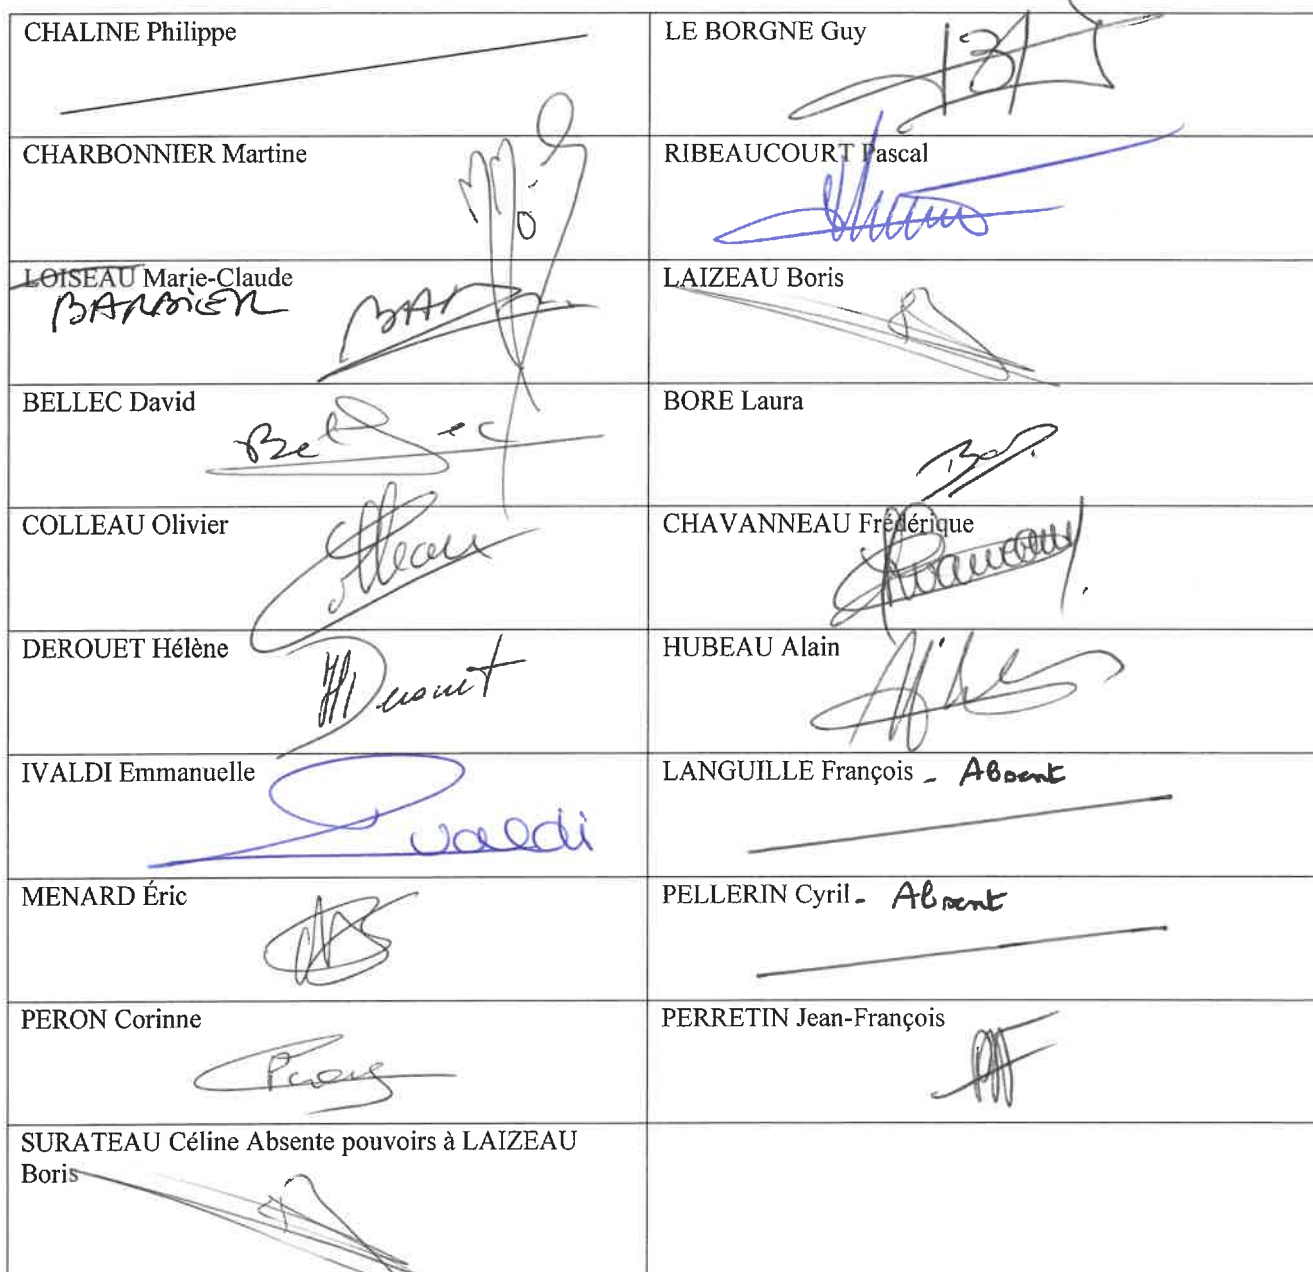 CHALINE Philippe
LE BORGNE Guy
CHARBONNIER Martine
RIBEAUCOURT Pascal
LOISEAU Marie-Claude
BARBIER
LAIZEAU Boris
BELLEC David
Bellec
BORE Laura
COLLEAU Olivier
Colleau
CHAVANNEAU Frédérique
DEROUET Hélène
HDerouet
HUBEAU Alain
IVALDI Emmanuelle
Ivaldi
LANGUILLE François - Absent
MENARD Éric
PELLERIN Cyril - Absent
PERON Corinne
PERRETIN Jean-François
SURATEAU Céline Absente pouvoirs à LAIZEAU
Boris